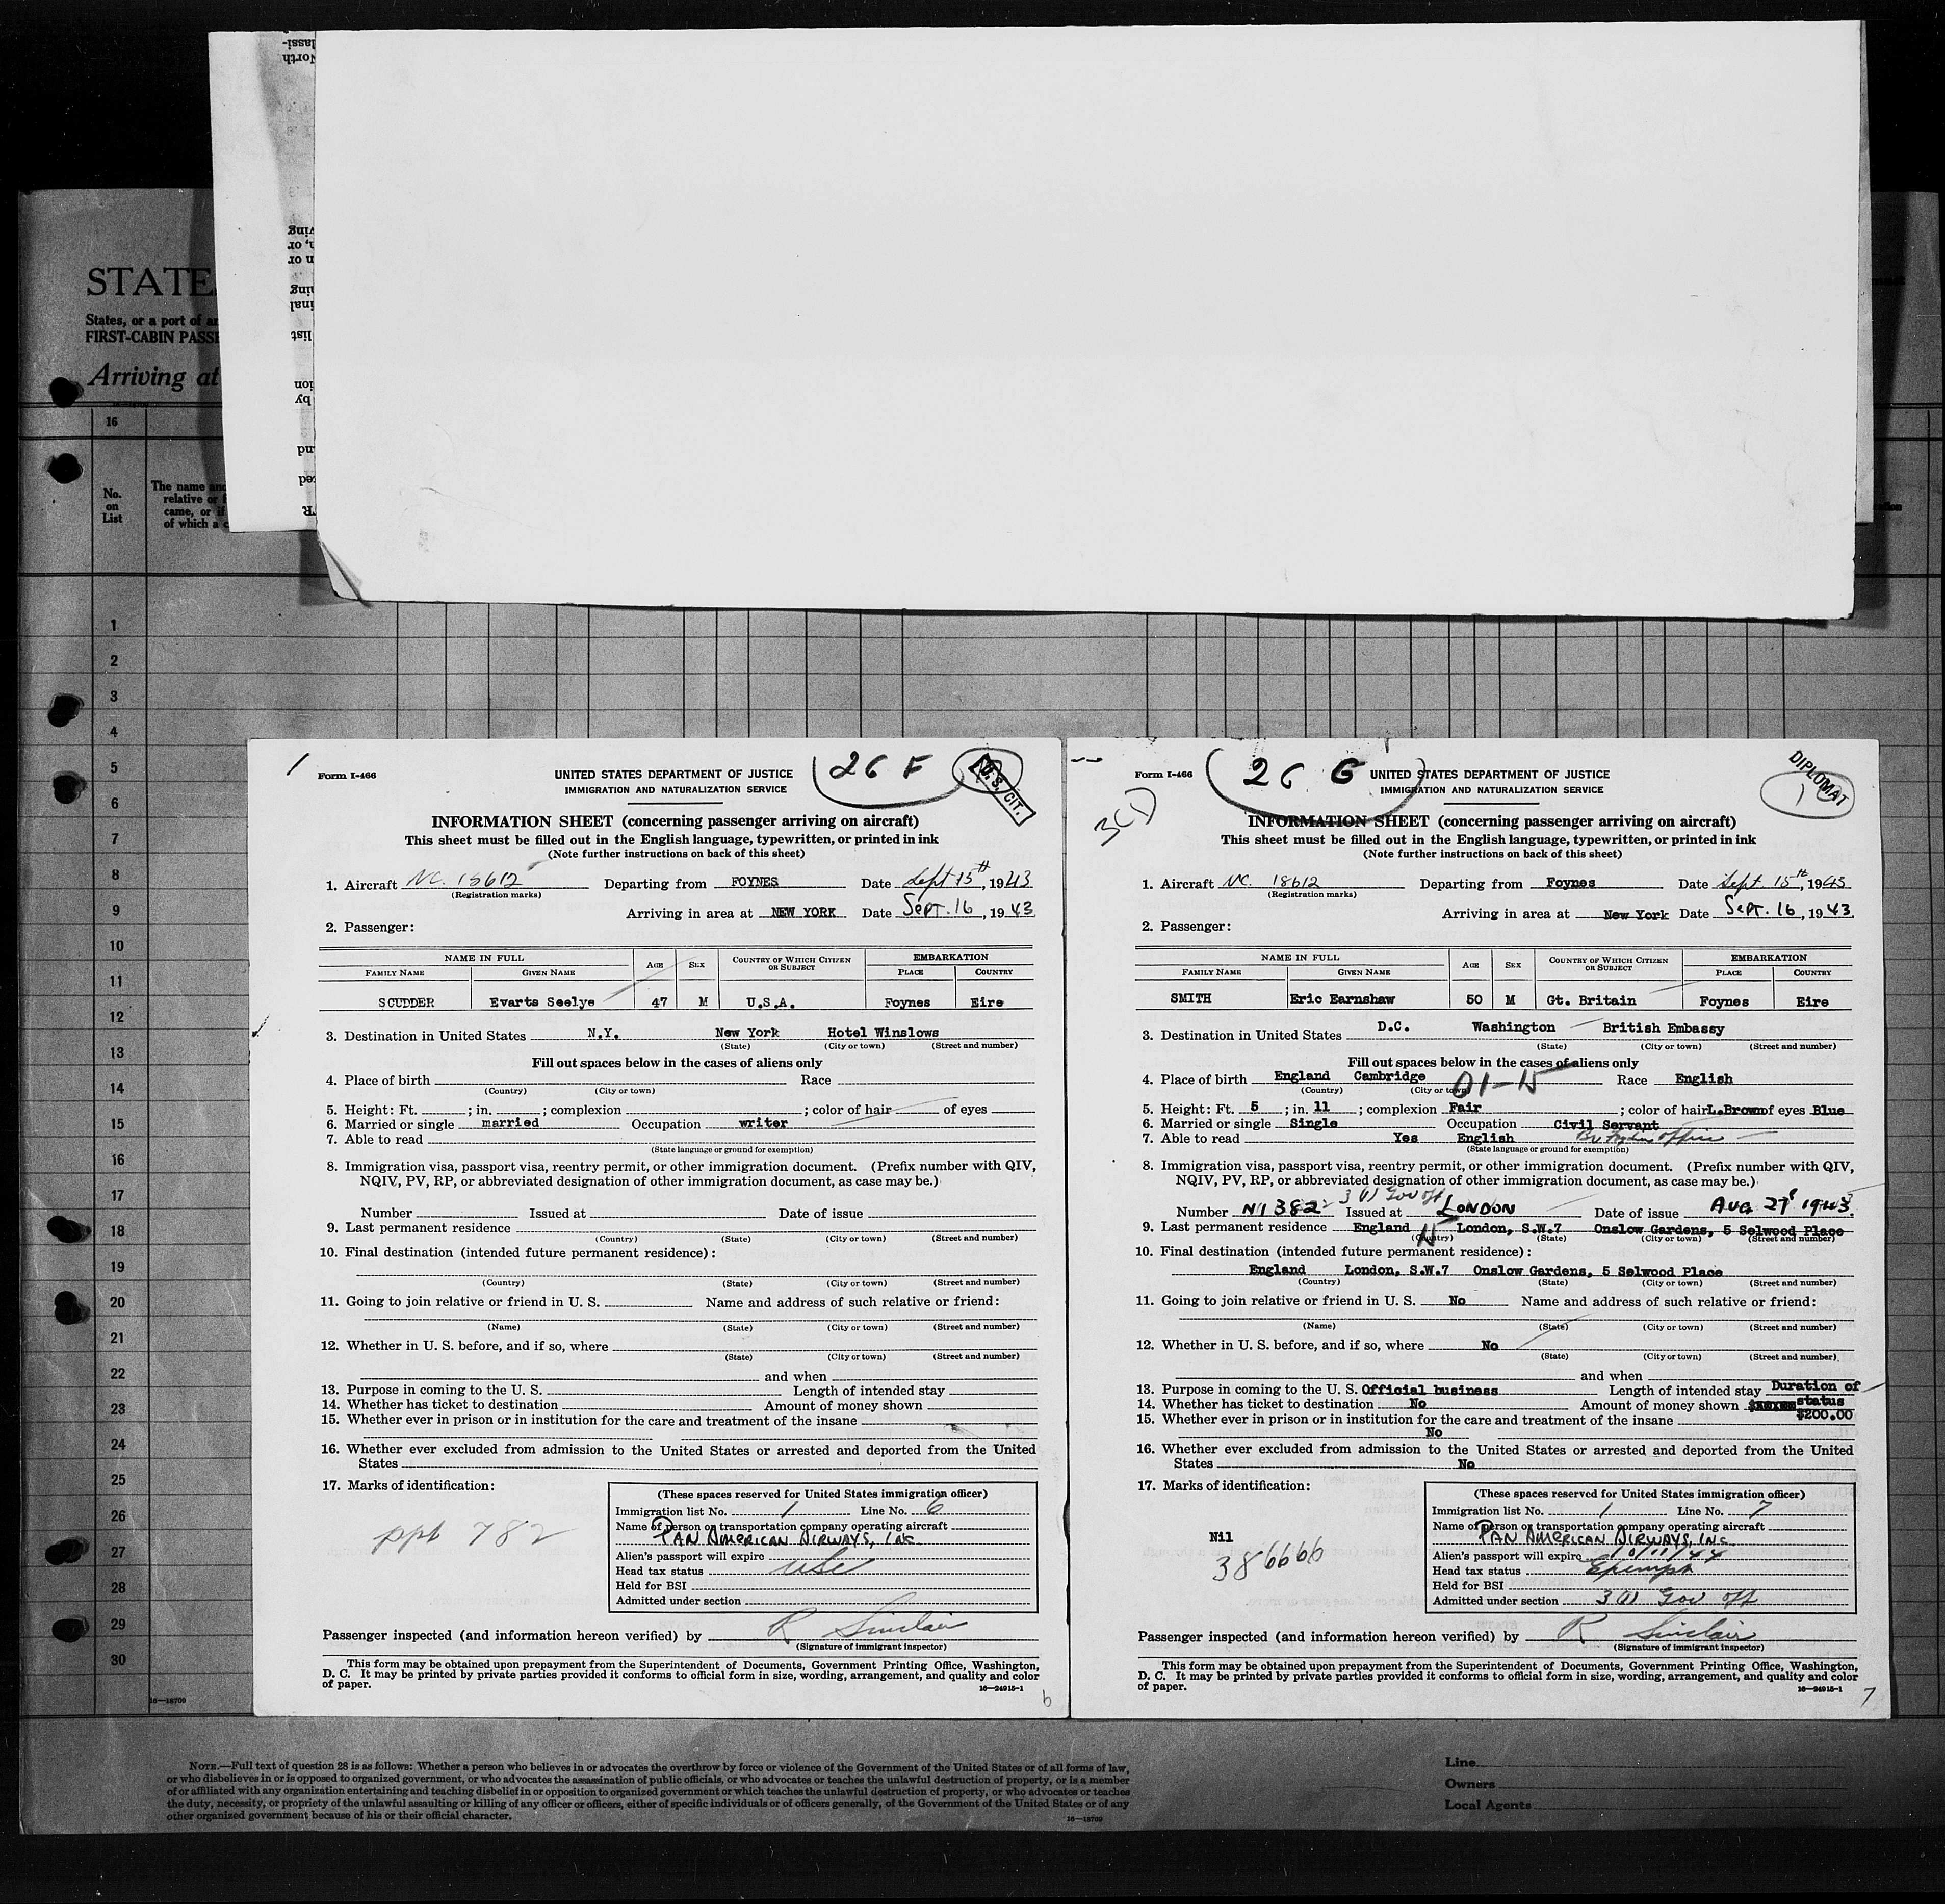 STATE
States, or a port of an
FIRST-CABIN PASSE
Arriving at
16
No.
on
List
The name and
relative or f
came, or if
of which a c
1
2
3
4
5
6
7
8
9
10
11
12
13
14
15
16
17
18
19
20
21
22
23
24
25
26
27
28
29
30
16—18709
Form I-466
26 F
U.S. CIT.
UNITED STATES DEPARTMENT OF JUSTICE
IMMIGRATION AND NATURALIZATION SERVICE
INFORMATION SHEET (concerning passenger arriving on aircraft)
This sheet must be filled out in the English language, typewritten, or printed in ink
(Note further instructions on back of this sheet)
1. Aircraft NC. 18612 Departing from FOYNES Date Sept 15th, 1943
(Registration marks)
Arriving in area at NEW YORK Date Sept. 16, 1943
2. Passenger:
NAME IN FULL AGE SEX COUNTRY OF WHICH CITIZEN OR SUBJECT EMBARKATION
FAMILY NAME GIVEN NAME PLACE COUNTRY
SCUDDER Evarts Seelye 47 M U.S.A. Foynes Eire
3. Destination in United States N.Y. New York Hotel Winslows
(State) (City or town) (Street and number)
Fill out spaces below in the cases of aliens only
4. Place of birth Race
(Country) (City or town)
5. Height: Ft. ; in. ; complexion ; color of hair of eyes
6. Married or single married Occupation writer
7. Able to read
(State language or ground for exemption)
8. Immigration visa, passport visa, reentry permit, or other immigration document. (Prefix number with QIV,
NQIV, PV, RP, or abbreviated designation of other immigration document, as case may be.)
Number Issued at Date of issue
9. Last permanent residence
(Country) (State) (City or town) (Street and number)
10. Final destination (intended future permanent residence):
(Country) (State) (City or town) (Street and number)
11. Going to join relative or friend in U. S. Name and address of such relative or friend:
(Name) (State) (City or town) (Street and number)
12. Whether in U. S. before, and if so, where
(State) (City or town) (Street and number)
and when
13. Purpose in coming to the U. S. Length of intended stay
14. Whether has ticket to destination Amount of money shown
15. Whether ever in prison or in institution for the care and treatment of the insane
16. Whether ever excluded from admission to the United States or arrested and deported from the United
States
17. Marks of identification:
ppt 782
(These spaces reserved for United States immigration officer)
Immigration list No. 1 Line No. 6
Name of person or transportation company operating aircraft
PAN AMERICAN AIRWAYS, INC
Alien's passport will expire
Head tax status USC
Held for BSI
Admitted under section
Passenger inspected (and information hereon verified) by R Sinclair
(Signature of immigrant inspector)
This form may be obtained upon prepayment from the Superintendent of Documents, Government Printing Office, Washington,
D. C. It may be printed by private parties provided it conforms to official form in size, wording, arrangement, and quality and color
of paper.
16—24915-1
6
Form I-466
26 G
DIPLOMAT
1
3(1)
UNITED STATES DEPARTMENT OF JUSTICE
IMMIGRATION AND NATURALIZATION SERVICE
INFORMATION SHEET (concerning passenger arriving on aircraft)
This sheet must be filled out in the English language, typewritten, or printed in ink
(Note further instructions on back of this sheet)
1. Aircraft NC. 18612 Departing from Foynes Date Sept 15th, 1943
(Registration marks)
Arriving in area at New York Date Sept. 16, 1943.
2. Passenger:
NAME IN FULL AGE SEX COUNTRY OF WHICH CITIZEN OR SUBJECT EMBARKATION
FAMILY NAME GIVEN NAME PLACE COUNTRY
SMITH Eric Earnshaw 50 M Gt. Britain Foynes Eire
3. Destination in United States D.C. Washington British Embassy
(State) (City or town) (Street and number)
Fill out spaces below in the cases of aliens only
4. Place of birth England Cambridge Race English
(Country) (City or town) 01-15
5. Height: Ft. 5 ; in. 11 ; complexion Fair ; color of hair L.Brown of eyes Blue
6. Married or single Single Occupation Civil Servant
7. Able to read Yes English Br Foreign office
(State language or ground for exemption)
8. Immigration visa, passport visa, reentry permit, or other immigration document. (Prefix number with QIV,
NQIV, PV, RP, or abbreviated designation of other immigration document, as case may be.)
3 (1) Gov off
Number NI 382 Issued at LONDON Date of issue Aug 27 1943.
9. Last permanent residence England London, S.W.7 Onslow Gardens, 5 Selwood Place
(Country) (State) (City or town) (Street and number)
10. Final destination (intended future permanent residence):
England London, S.W.7 Onslow Gardens, 5 Selwood Place
(Country) (State) (City or town) (Street and number)
11. Going to join relative or friend in U. S. No Name and address of such relative or friend:
(Name) (State) (City or town) (Street and number)
12. Whether in U. S. before, and if so, where No
(State) (City or town) (Street and number)
and when
13. Purpose in coming to the U. S. Official business Length of intended stay Duration of
status
14. Whether has ticket to destination No Amount of money shown $200.00
15. Whether ever in prison or in institution for the care and treatment of the insane
No
16. Whether ever excluded from admission to the United States or arrested and deported from the United
States No
17. Marks of identification:
Nil
386666
(These spaces reserved for United States immigration officer)
Immigration list No. 1 Line No. 7
Name of person or transportation company operating aircraft
PAN AMERICAN AIRWAYS, INC
Alien's passport will expire 10/11/44
Head tax status Exempt
Held for BSI
Admitted under section 3 (1) Gov off
Passenger inspected (and information hereon verified) by R Sinclair
(Signature of immigrant inspector)
This form may be obtained upon prepayment from the Superintendent of Documents, Government Printing Office, Washington,
D. C. It may be printed by private parties provided it conforms to official form in size, wording, arrangement, and quality and color
of paper.
16—24915-1
7
NOTE.—Full text of question 28 is as follows: Whether a person who believes in or advocates the overthrow by force or violence of the Government of the United States or of all forms of law,
or who disbelieves in or is opposed to organized government, or who advocates the assassination of public officials, or who advocates or teaches the unlawful destruction of property, or is a member
of or affiliated with any organization entertaining and teaching disbelief in or opposition to organized government or which teaches the unlawful destruction of property, or who advocates or teaches
the duty, necessity, or propriety of the unlawful assaulting or killing of any officer or officers, either of specific individuals or of officers generally, of the Government of the United States or of any
other organized government because of his or their official character.
16—18709
Line
Owners
Local Agents